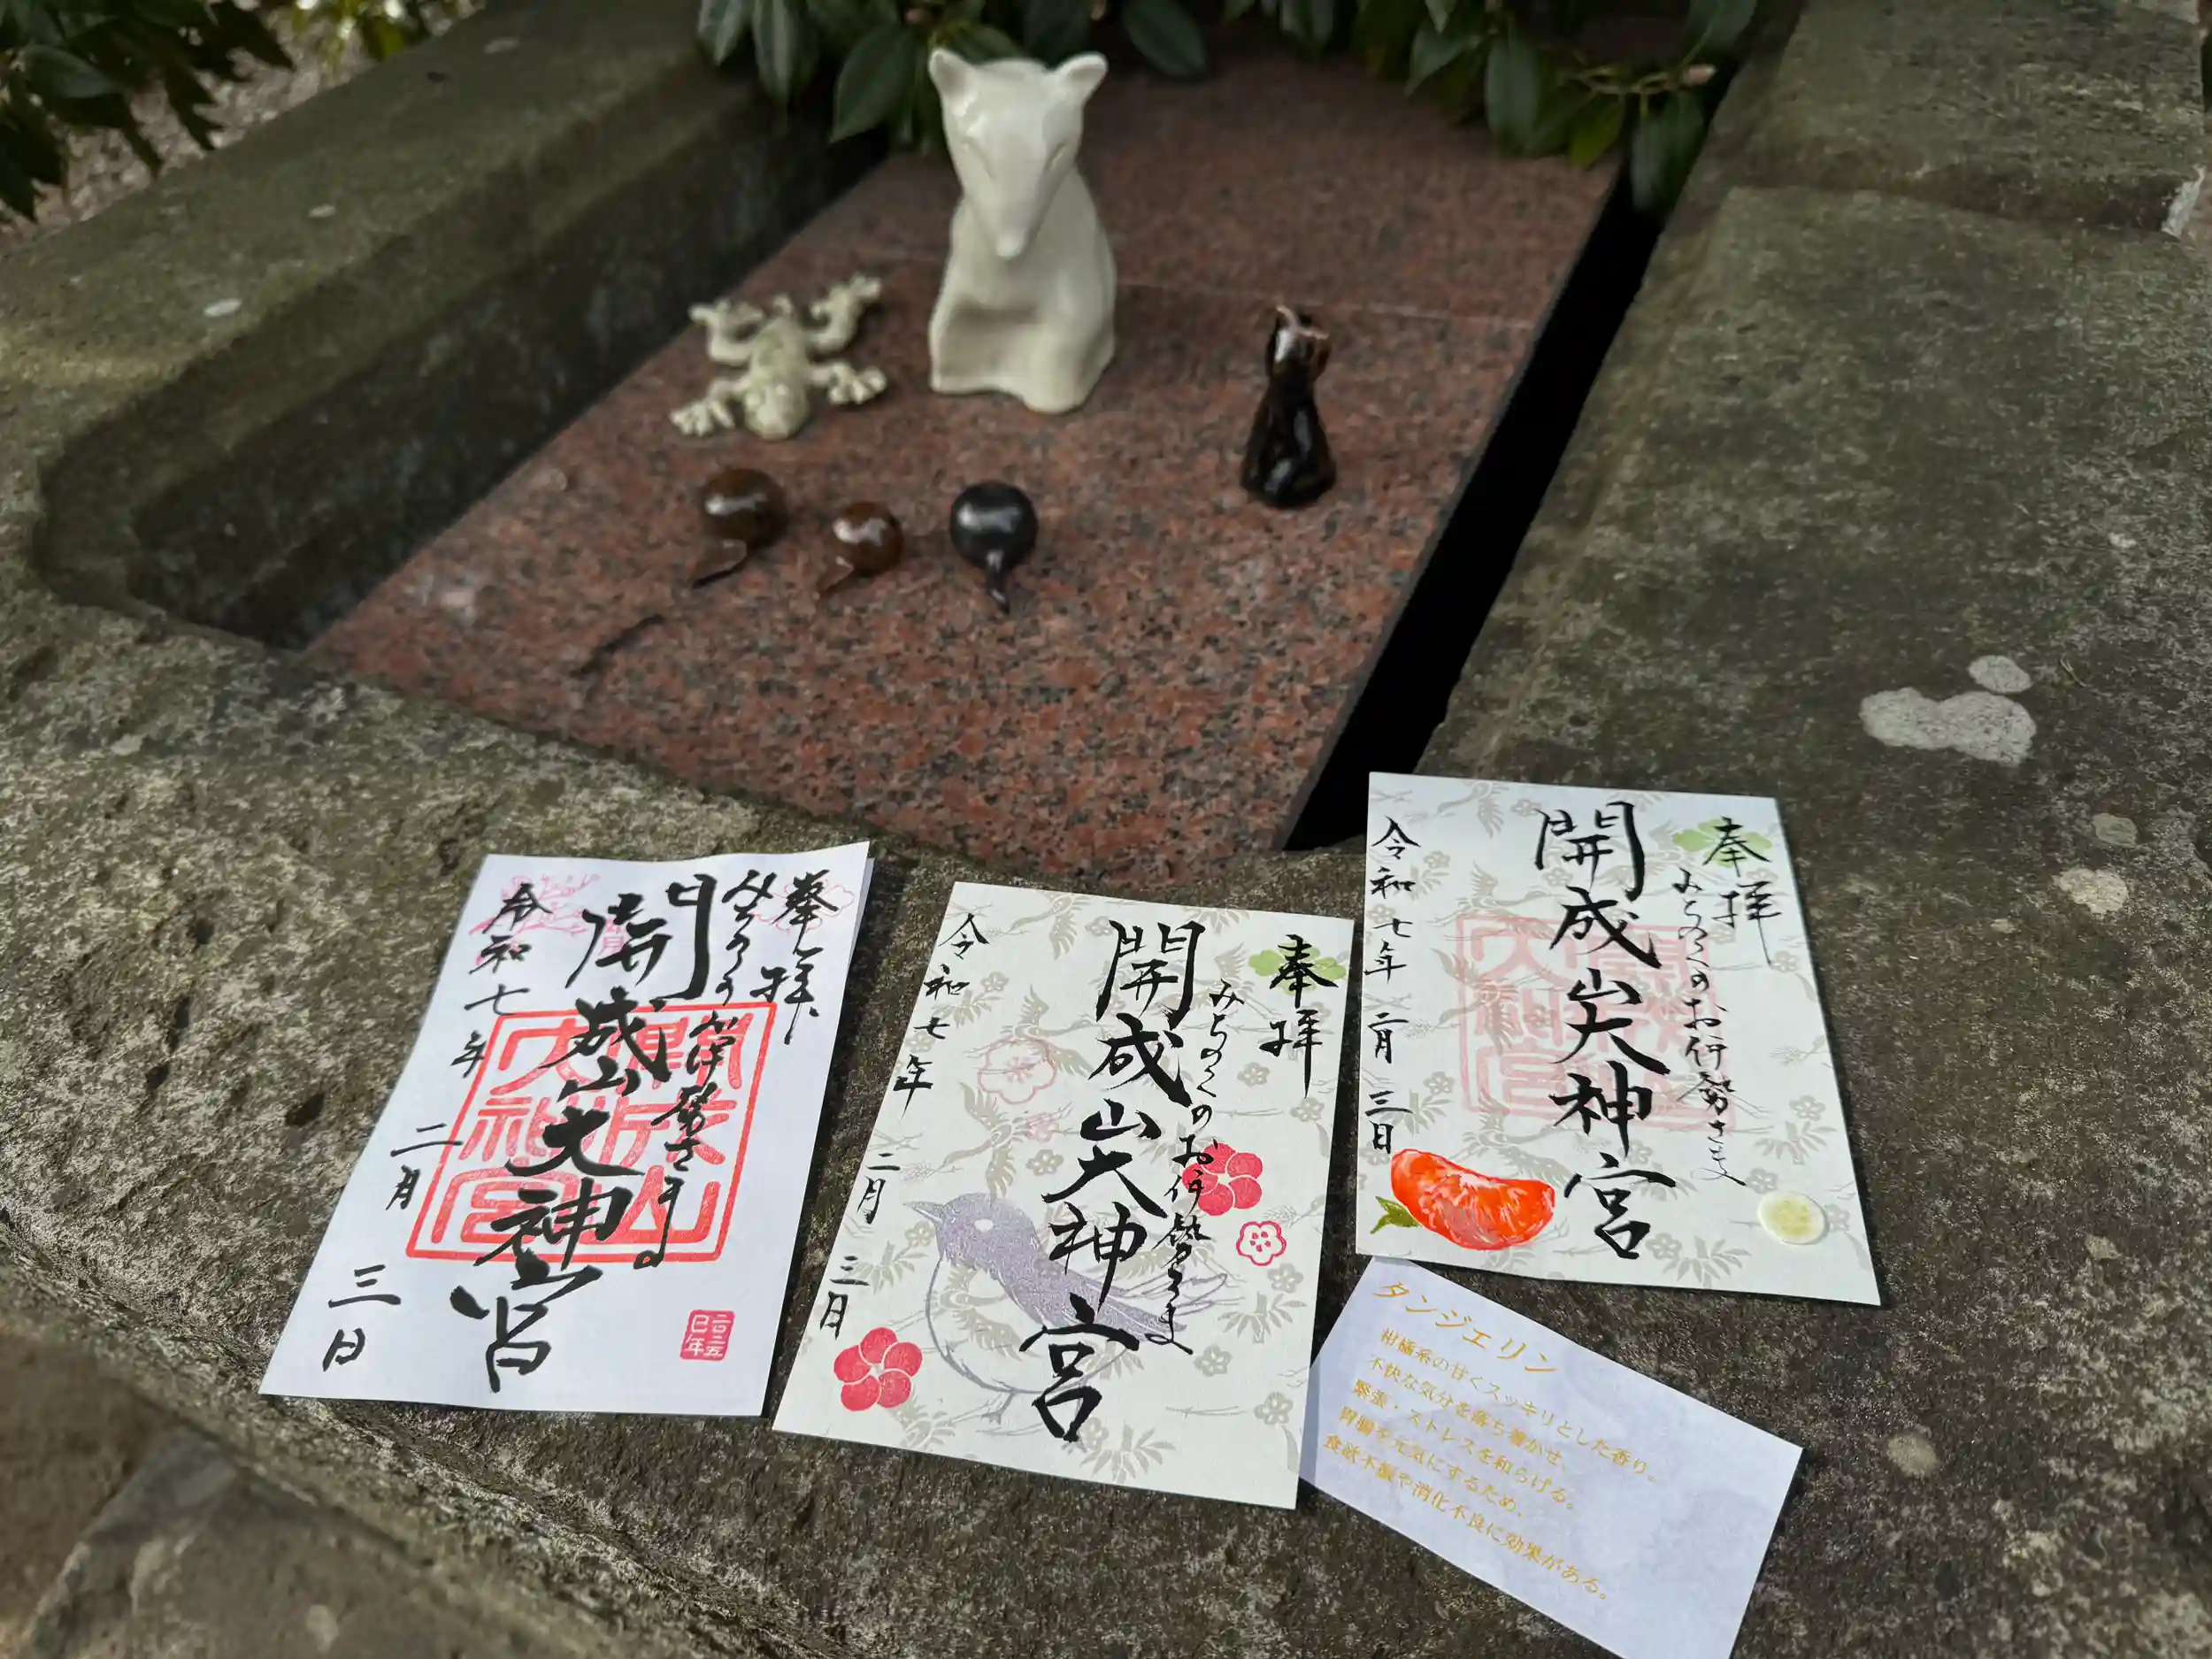 奉拝
みちのくのお伊勢さま
開成山大神宮
令和七年
二月
三日
開成山
大神宮
二〇二五
巳年
奉拝
みちのくのお伊勢さま
開成山大神宮
令和七年
二月
三日
奉拝
みちのくのお伊勢さま
開成山大神宮
令和七年
二月
三日
開成山
大神宮
タンジェリン
柑橘系の甘くスッキリとした香り。
不快な気分を落ち着かせ、
緊張・ストレスを和らげる。
胃腸を元気にするため、
食欲不振や消化不良に効果がある。